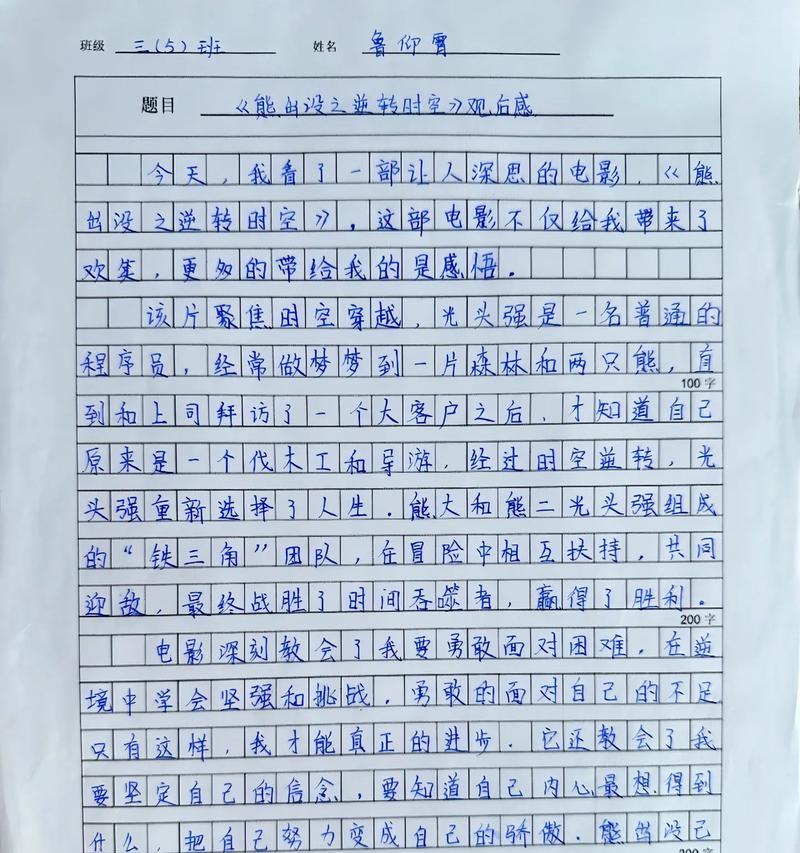 班级 三(5)班 姓名 鲁仰霄
题目 《熊出没之逆转时空》观后感
今天，我看了一部让人深思的电影，《熊
出没之逆转时空》，这部电影不仅给我带来了
欢笑，更多的带给我的是感悟。
该片聚焦时空穿越，光头强是一名普通的
程序员，经常做梦梦到一片森林和两只熊，直
100字
到和上司拜访了一个大客户之后，才知道自己
原来是一个伐木工和导游，经过时空逆转，光
头强重新选择了人生．熊大和熊二光头强组成
的“铁三角”团队，在冒险中相互扶持，共同
迎敌，最终战胜了时间吞噬者，赢得了胜利。
200字
电影深刻教会了我要勇敢面对困难，在逆
境中学会坚强和挑战，勇敢的面对自己的不足
只有这样，我才能真正的进步．它还教会了我
要坚定自己的信念，要知道自己内心最想得到
什么，把自己努力变成自己的骄傲．熊出没已
300字